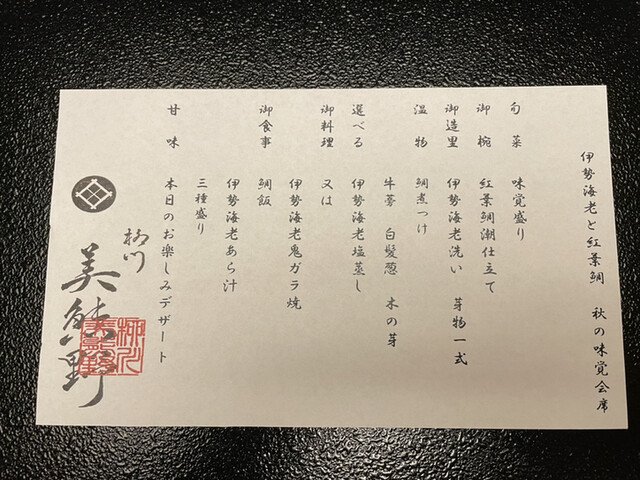 伊勢海老と紅葉鯛 秋の味覚会席
旬菜 味覚盛り
御椀 紅葉鯛潮仕立て
御造里 伊勢海老洗い 芽物一式
温物 鯛煮つけ
牛蒡 白髪葱 木の芽
選べる 伊勢海老塩蒸し
御料理 又は
伊勢海老鬼ガラ焼
御食事 鯛飯
伊勢海老あら汁
三種盛り
甘味 本日のお楽しみデザート
柳川
美能野